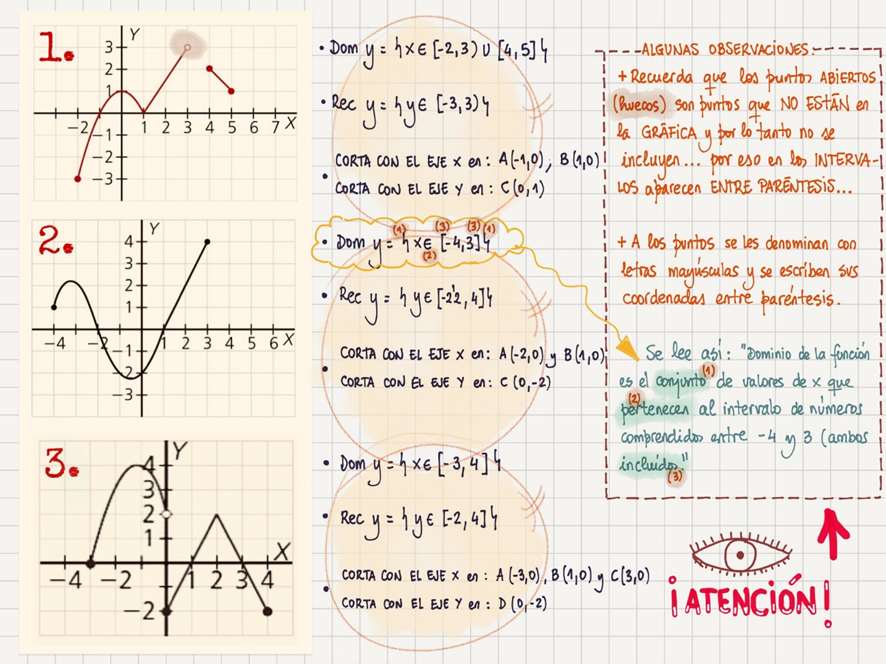 1.
Y
3
2
1
-2
-1
1 2 3 4 5 6 7 X
-1
-2
-3
• Dom y = {x∈ [-2,3) ∪ [4,5]}
• Rec y = {y∈ [-3,3)}
• CORTA CON EL EJE X en: A(-1,0), B(1,0)
CORTA CON EL EJE Y en: C(0,1)
2.
Y
4
3
2
1
-4 -2 1 2 3 4 5 6 X
-1
-2
-3
(1) (3) (3) (1)
• Dom y = {x∈ [-4,3]}
(2)
• Rec y = {y∈ [-2'2, 4]}
• CORTA CON EL EJE X en: A(-2,0) y B(1,0)
CORTA CON EL EJE Y en: C(0,-2)
3.
Y
4
3
2
1
X
-4 -2 1 2 3 4
-2
• Dom y = {x∈ [-3,4]}
• Rec y = {y∈ [-2,4]}
• CORTA CON EL EJE X en: A(-3,0), B(1,0) y C(3,0)
CORTA CON EL EJE Y en: D(0,-2)
ALGUNAS OBSERVACIONES:
+ Recuerda que los puntos ABIERTOS
(huecos) son puntos que NO ESTÁN en
la GRÁFICA y por lo tanto no se
incluyen... por eso en los INTERVA-
LOS aparecen ENTRE PARÉNTESIS...
+ A los puntos se les denominan con
letras mayúsculas y se escriben sus
coordenadas entre paréntesis.
Se lee así: "Dominio de la función
es el conjunto (1) de valores de x que
(2) pertenecen al intervalo de números
comprendidos entre -4 y 3 (ambos
incluidos."
(3)
¡ATENCIÓN!